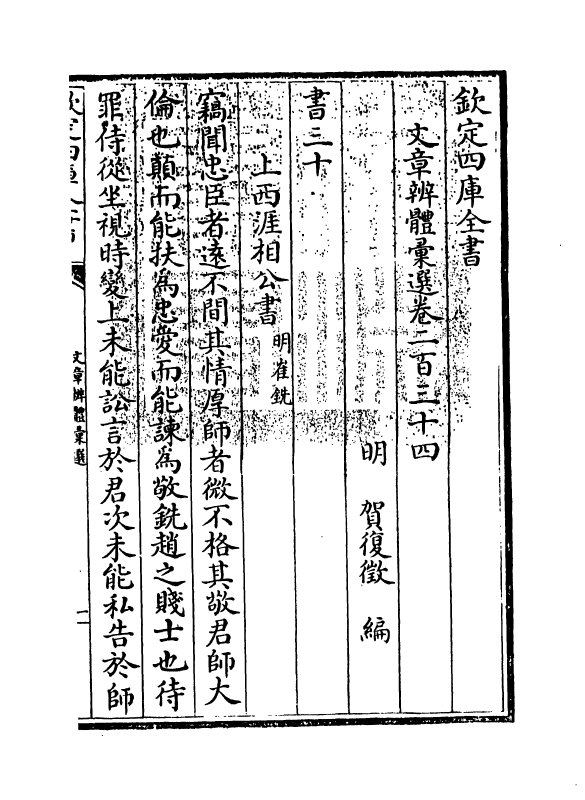 欽定四庫全書
文章辨體彚選卷二百三十四
明 賀復徵 編
書三十
上西涯相公書 明崔銑
竊聞忠臣者遠不間其情厚師者微不格其敬君師大
倫也顛而能扶為忠愛而能諫為敬銑趙之賤士也待
罪侍從坐視時變上未能訟言於君次未能私告於師
文章辨體彚選
一